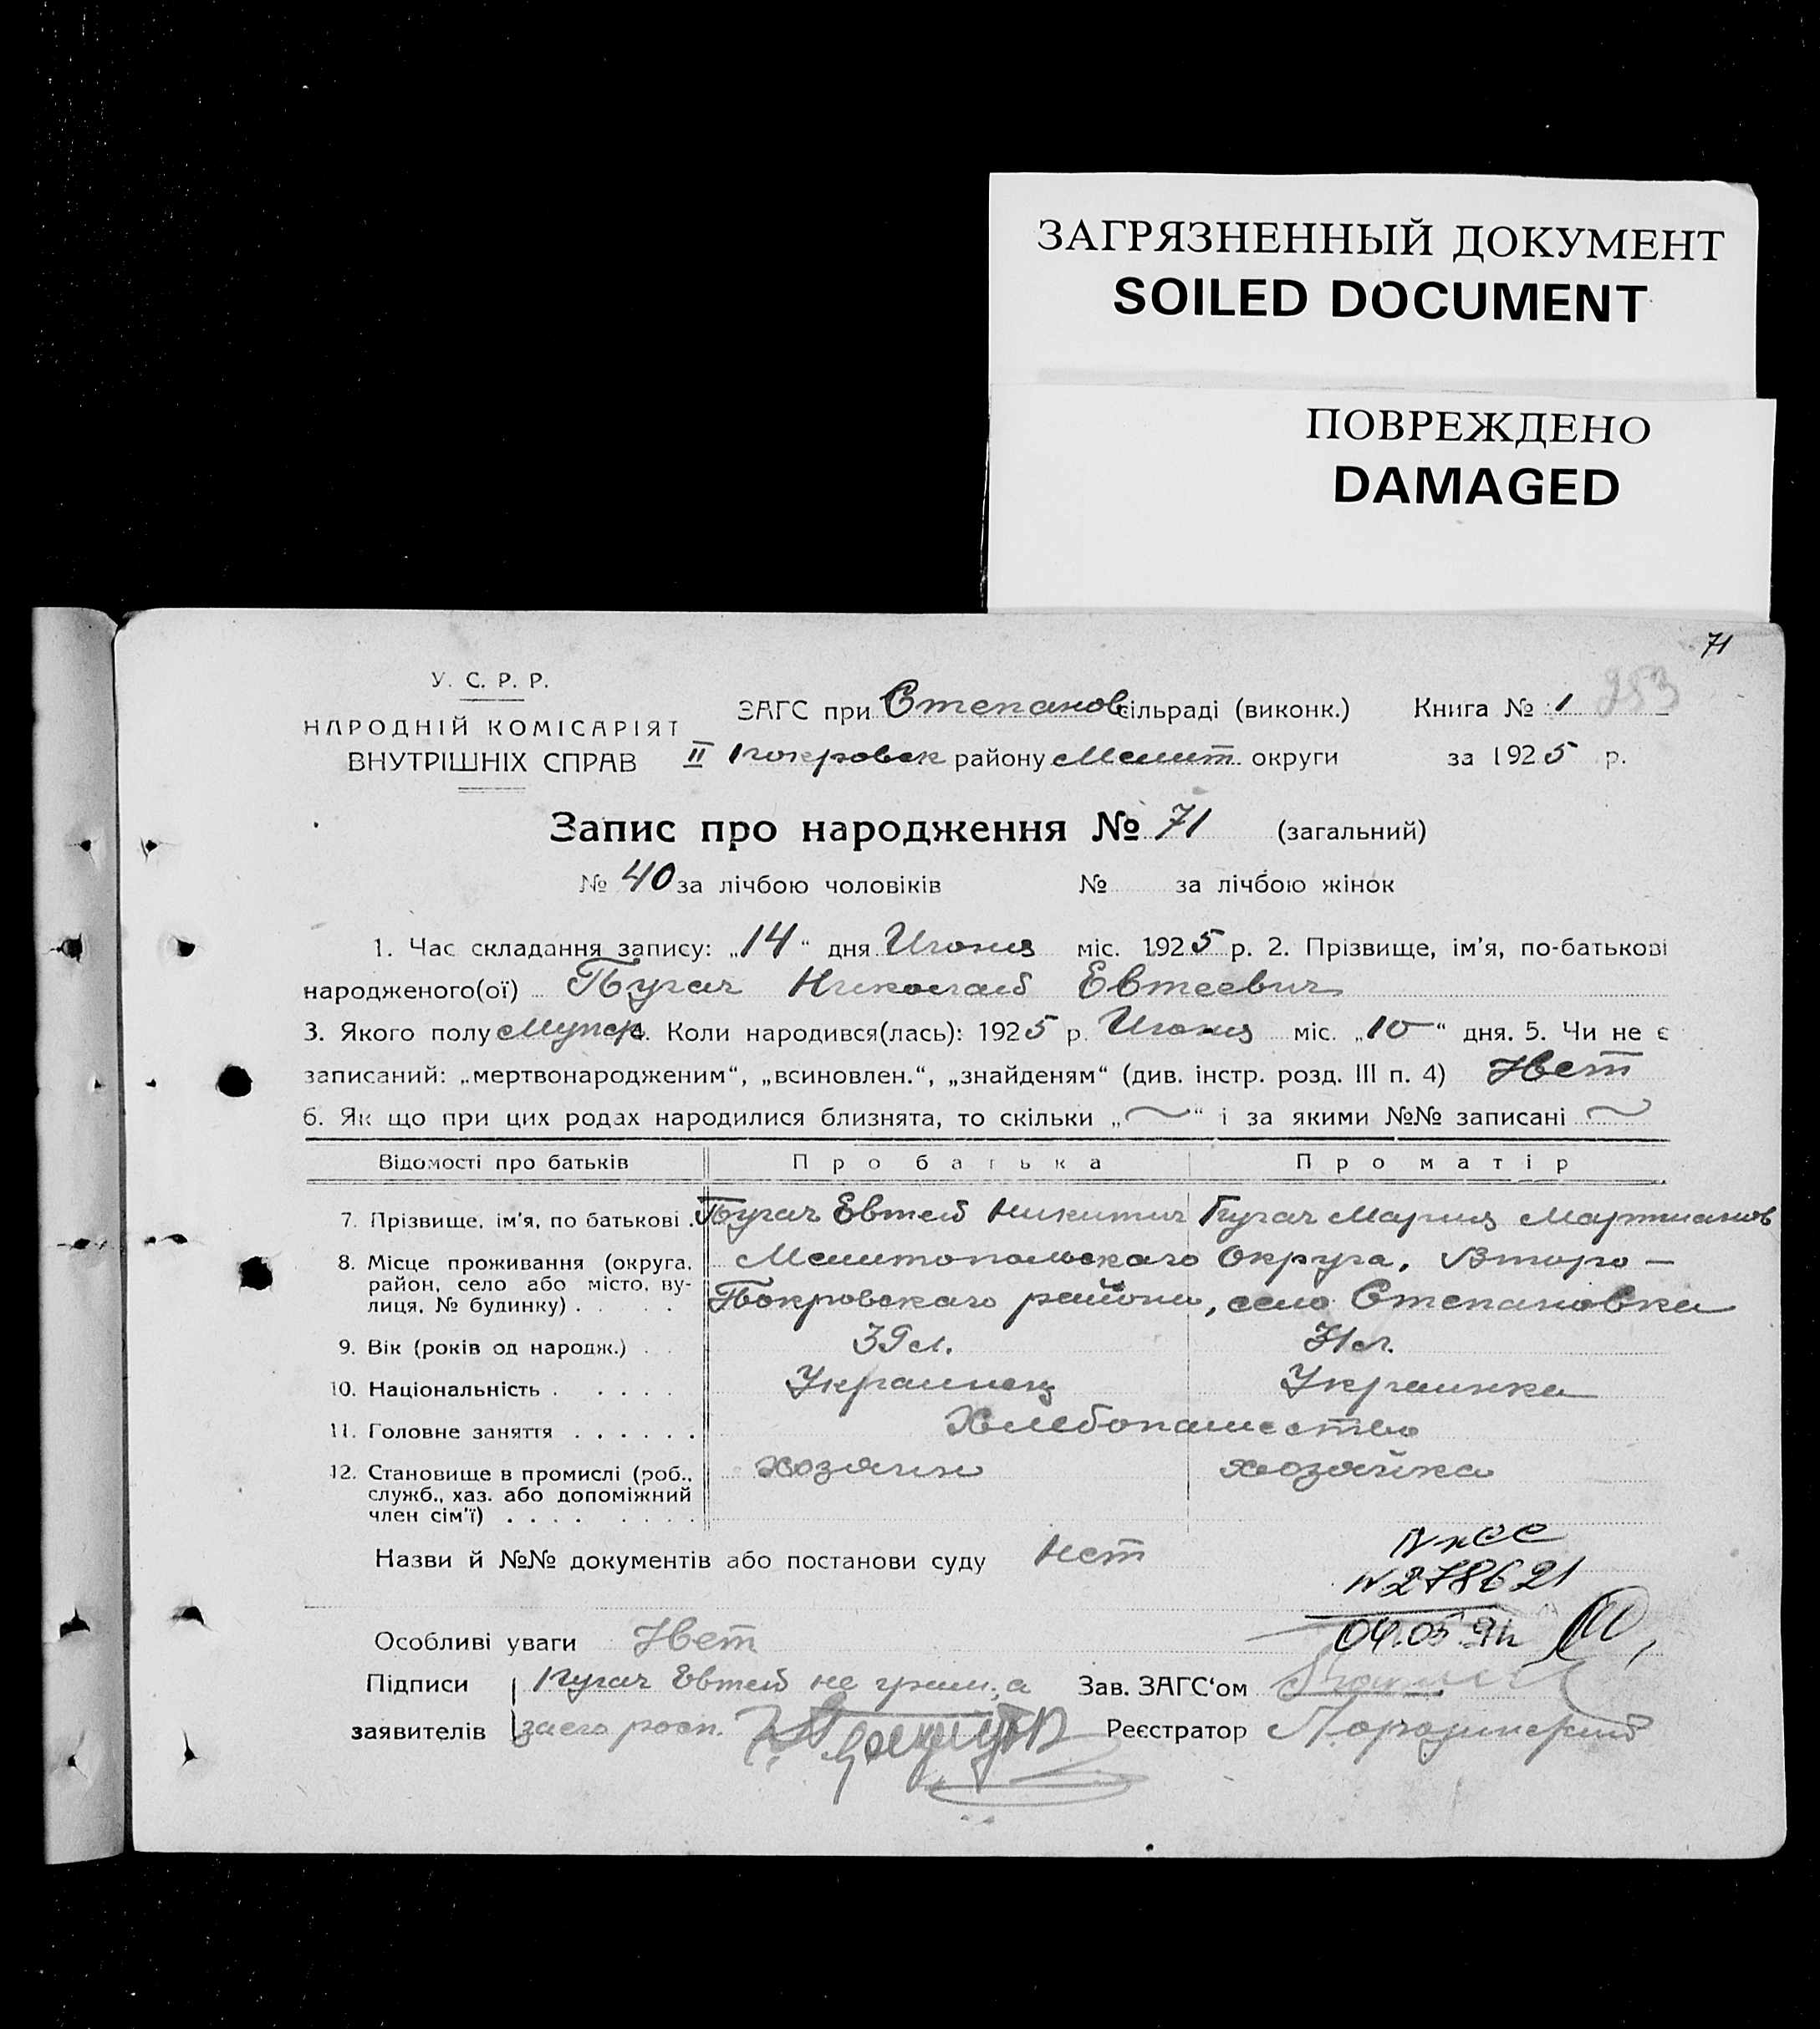 ЗАГРЯЗНЕННЫЙ ДОКУМЕНТ
SOILED DOCUMENT
ПОВРЕЖДЕНО
DAMAGED
71
253
У. С. Р. Р.
НАРОДНІЙ КОМІСАРІЯТ
ВНУТРІШНІХ СПРАВ
ЗАГС при Степанов сільраді (виконк.) Книга № 1
II Покровск району Мелит. округи за 1925 р.
Запис про народження № 71 (загальний)
№ 40 за лічбою чоловіків № за лічбою жінок
1. Час складання запису: „14“ дня Июня міс. 1925 р. 2. Прізвище, ім'я, по-батькові
народженого(ої) Пугач Николай Евтеевич
3. Якого полу Мужск. 4. Коли народився(лась): 1925 р. Июня міс. „10“ дня. 5. Чи не є
записаний: „мертвонародженим“, „всиновлен.“, „знайденям“ (див. інстр. розд. III п. 4) Нет
6. Як що при цих родах народилися близнята, то скільки „~“ і за якими №№ записані ~
Відомості про батьків Про батька Про матір
7. Прізвище, ім'я, по батькові . Пугач Евтей Никитич Пугач Мария Мартианов
8. Місце проживання (округа, район, село або місто, вулиця, № будинку) . . . . Мелитопольскаго Округа, Второ –
Покровскаго района, село Степановка
9. Вік (років од народж.) . . 39 л. 31 л.
10. Національність . . . . . Украинец Украинка
11. Головне заняття . . . . . . Хлебопашество
12. Становище в промислі (роб., служб., хаз. або допоміжний член сім'ї) . . . . . . . . хозяин хозяйка
Назви й №№ документів або постанови суду Нет
N 278621
Особливі уваги Нет
04.03.
Підписи Пугач Евтей не грам., а Зав. ЗАГС‘ом
заявителів за его росп. Реєстратор